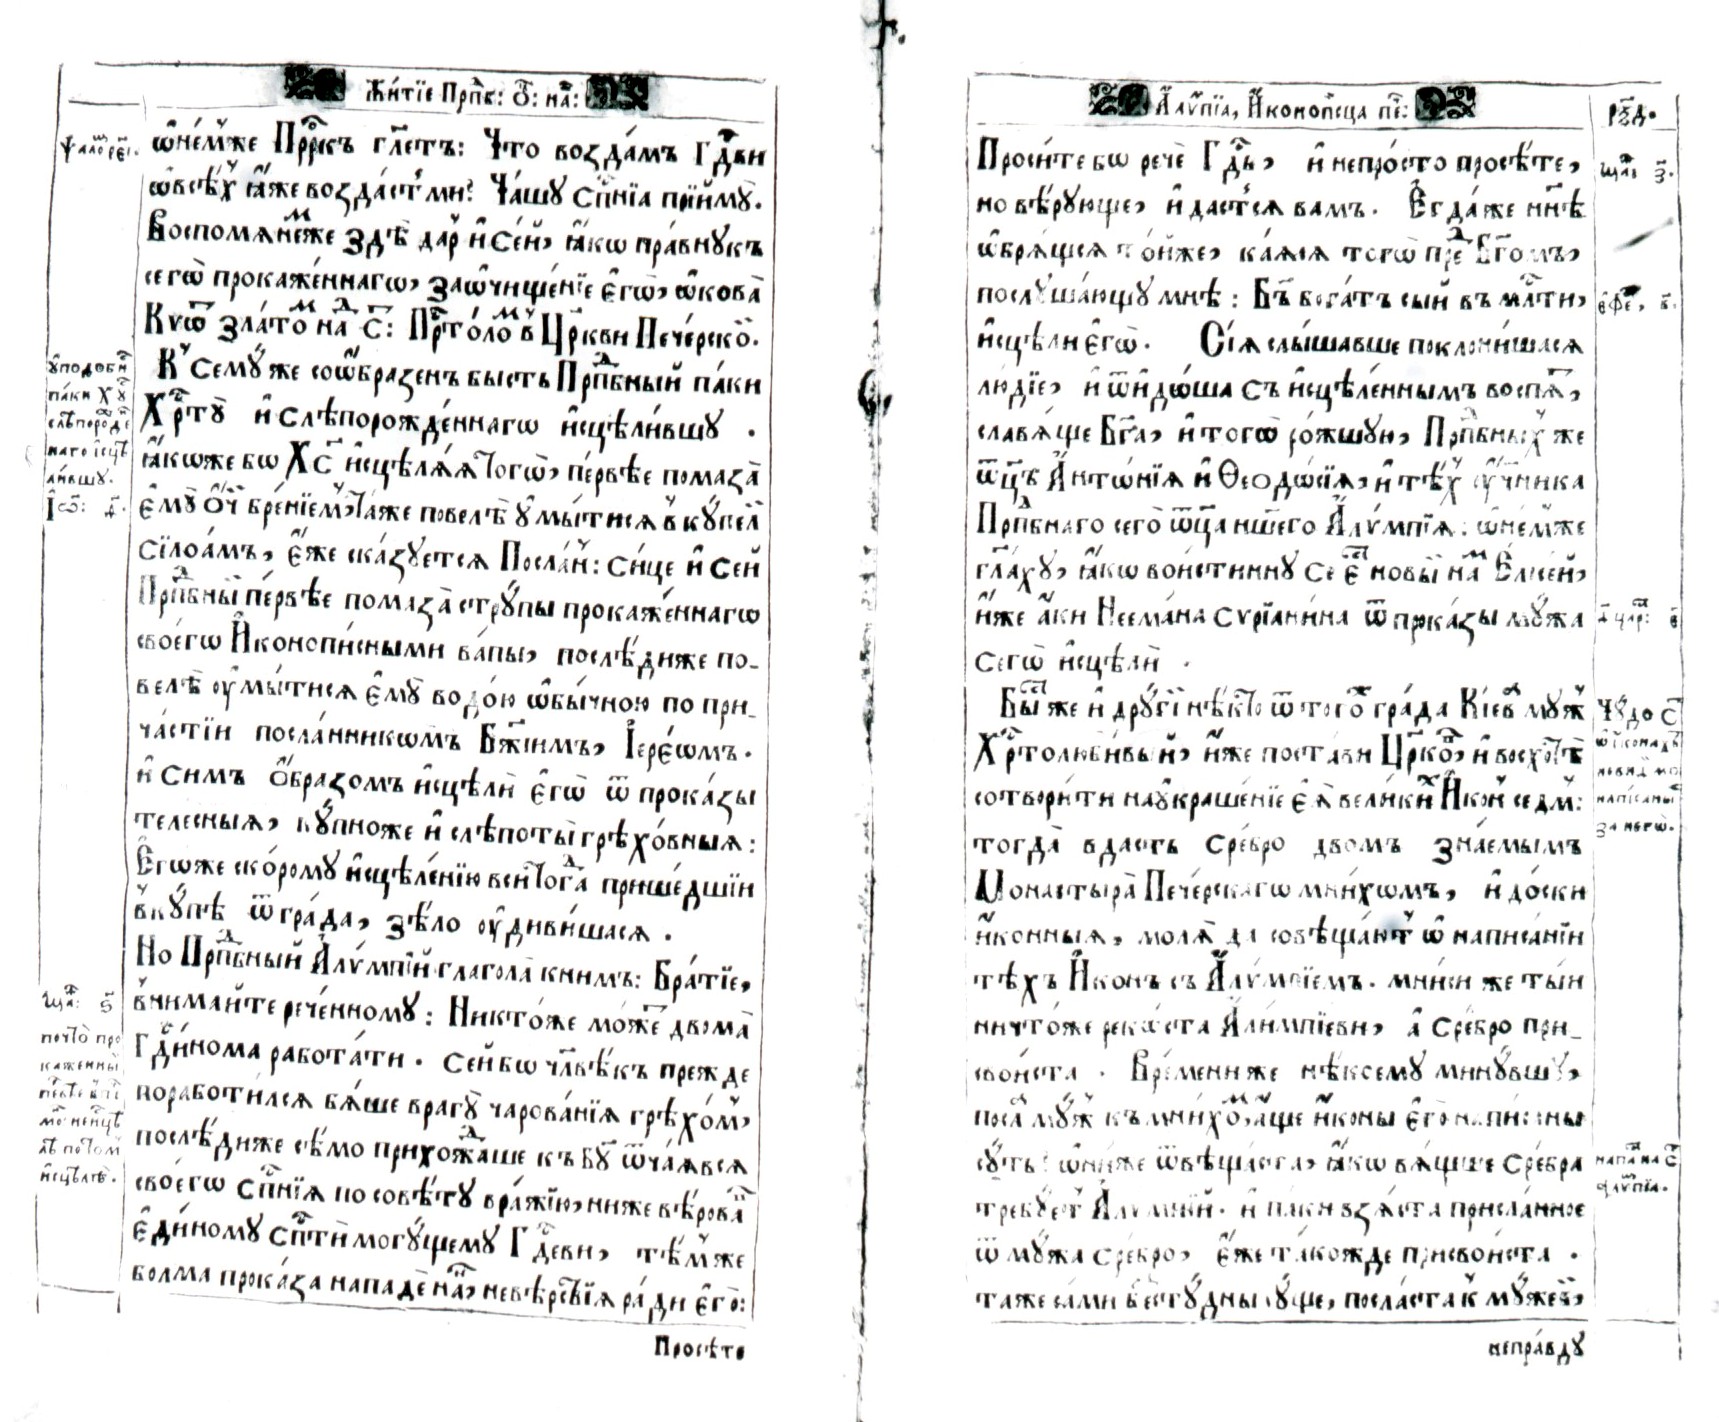 Житїе Прпⷣбⷩ: Ѿ: наⷲ:
Ѱалоⷨ рєі҃.
ѡ҆не́мже Прⷪ҇ркъ гл҃етъ: Что воздамъ Гдⷭ҇ви
ѡ҆всѣ́хъ ꙗ҆̀же воздастъ ми? Чашꙋ сп҃нїа прїимꙋ̀.
Воспомѧнеⷨже здѣ̀ даръ и҆ се́й, ꙗ҆́кѡ пра́внꙋкъ
сегѡ̀ прокаже́ннагѡ, заѡ҆чище́нїе є҆гѡ̀, ѡ҆кова̀
Кїѡ́тъ зла́тоⷨ наⷣ с҃: Прⷭ҇то́лоⷨ въ Цр҃кви Пече́рскоⷨ.
Къ Семꙋ́ же соѡбразенъ бысть Прпⷣбный па́ки
Хрⷭ҇тꙋ̀ и҆ слѣпорожде́ннагѡ и҆сцѣли́вшꙋ .
ꙗ҆́коже бо Хс҃ и҆сцѣлѧ́ѧ того̀, пе́рвѣе помаза̀
є҆мꙋ̀ ѻ҆́чи бре́нїемъ, таже повелѣ̀ ᲂу҆мы́тисѧ въ кꙋпе́ли
Сїлоа́мъ, є҆́же ска́зꙋетсѧ По́сланъ: си́це и҆ сей
Прпⷣбный пе́рвѣе помаза̀ стрꙋ́пы прокаже́ннагѡ
своегѡ И҆конопи́сными ва́пы, послѣ́диже по-
велѣ̀ ᲂу҆мы́тисѧ є҆мꙋ̀ водо́ю ѡ҆бы́чною по при-
ча́стїи посла́нникѡмъ Бж҃їимъ, І҆ере́ѡмъ.
и҆ Симъ ѻ҆́бразомъ и҆сцѣлѝ є҆гѡ̀ ѿ прока́зы
теле́сныѧ, кꙋ́пноже и҆ слѣпоты̀ грѣхо́вныѧ:
Є҆гѡ́же ско́ромꙋ и҆сцѣле́нїю вси тогⷣа прише́дшїи
вкꙋ́пѣ ѿ гра́да, зѣ́ло ᲂу҆диви́шасѧ .
Но Прпⷣбный А҆лѵ́мпїй глагола̀ книмъ: Бра́тїе,
внима́йте рече́нномꙋ: Никто́же мо́жеⷮ двома̀
Гдⷭ҇и́нома рабо́тати . Сей бо чл҃вѣ́къ пре́жде
порабо́тилсѧ бѧ́ше врагꙋ̀ чарова́нїѧ грѣхо́мъ,
послѣ́диже сѣ́мо прихожⷣаше къ Бг҃ꙋ ѿча́ѧвсѧ
своегѡ сп҃нїѧ по совѣ́тꙋ вра́жїю, ниже вѣ́рова
є҆ди́номꙋ спⷭ҇тѝ могꙋ́щемꙋ Гдⷭ҇еви, тѣ́мже
болма прока́за нападе нань, невѣ́рствїѧ ра́ди є҆гѡ̀:
ᲂу҆подобиⷭ҇
па́ки Хрⷭ҇тꙋ̀
слѣпорожде
наго исцѣ
ли́вшꙋ.
І҆ѡ҃: ѳ҃.
Маⷴ: ѕ҃
почто̀ про
каженный
пе́рвѣе
и҆сцѣлѣ̀.
Просѣ́те

А҆лѵпїа, И҆конописца пеⷱ:
рѯд.
Проси́те бо речѐ Гдⷭ҇ь, и҆ непро́сто просѣ́те,
но вѣ́рꙋюще, и҆ даст́сѧ вамъ. Є҆гда́же нн҃ѣ
ѡ҆брѧщсѧ то́йже, ка́ѧсѧ тогѡ̀ преⷣ Бг҃омъ,
послꙋша́ющꙋ мнѣ: Бг҃ъ бога́тъ сый въ млⷭ҇ти,
и҆сцѣли є҆гѡ̀. Сїѧ слы́шавше поклони́шасѧ
лю́дїе, и҆ ѿидо́ша съ и҆сцѣле́ннымъ воспѧ́ⷮ,
сла́вѧще Бг҃а, и҆ тогѡ̀ ро́жшꙋю, Прпⷣбныхъ же
ѿц҃ъ А҆нтѡ́нїѧ и҆ Ѳеодѡ́сїѧ, и҆ тѣ́хъ ᲂу҆чн҃ика
Прпⷣбнаго сего̀ ѿц҃а нш҃его А҆лѵ́мпїѧ: ѡ҆не́мже
гл҃ахꙋ, ꙗ҆́кѡ вои́стиннꙋ Се є҆сть но́вый наⷨ Є҆лисе́й,
и҆́же а҆́ки Неема́на Сѵрїани́на ѿ прока́зы мꙋ́жа
Сегѡ̀ и҆сцѣлѝ .
Быⷭ҇ же и҆ дрꙋгїй нѣкто ѿ того̀ гра́да Кі́ева мꙋжъ
Хрⷭ҇толюби́вый, и҆́же поста́ви Цр҃ковь, и҆ восхотѣ̀
сотвори́ти на ᲂу҆краше́нїе є҆ѧ̀ вели́кихъ И҆ко́нъ седмь:
тогда̀ вдастъ сребро двомъ зна́емымъ
Монастырѧ̀ Пече́рскагѡ мни́хомъ, и҆ до́ски
и҆ко́нныѧ, молѧ̀ да совѣща́ютъ ѡ҆ написа́нїи
тѣхъ И҆конъ съ А҆лѵ́мпїемъ. мниси же ты́и
ничто́же реко́ста А҆ли́мпїеви, а҆ Сребро при-
сво́иста . Вре́мени же нѣкоемꙋ минꙋ́вшꙋ,
посла̀ мꙋжъ къ мнихоⷨ, а҆́ще и҆ко́ны є҆гѡ̀ напи́саны
сꙋть? ѡ҆ниже ѿвѣща́ста, ꙗ҆́кѡ вѧ́щше Сребра
требꙋетъ А҆лѵ́мпїй. и҆ па́ки взѧ́ста присла́нное
ѿ мꙋжа Сребро, є҆́же та́кожде присво́иста .
таже са́ми бестꙋ́дны сꙋ́ще, посла́ста къ мꙋ́жеви,
Маⷴ: з҃.
є҆феⷭ҇, в҃.
д҃ цаⷬ: є҃
Чꙋ́до с҃
ѡ҆ и҆конахъ
неви́димо
напи́санныⷯ
за него̀.
напаⷭ҇ на с҃
а҆лѵпїа.
непра́вдꙋ